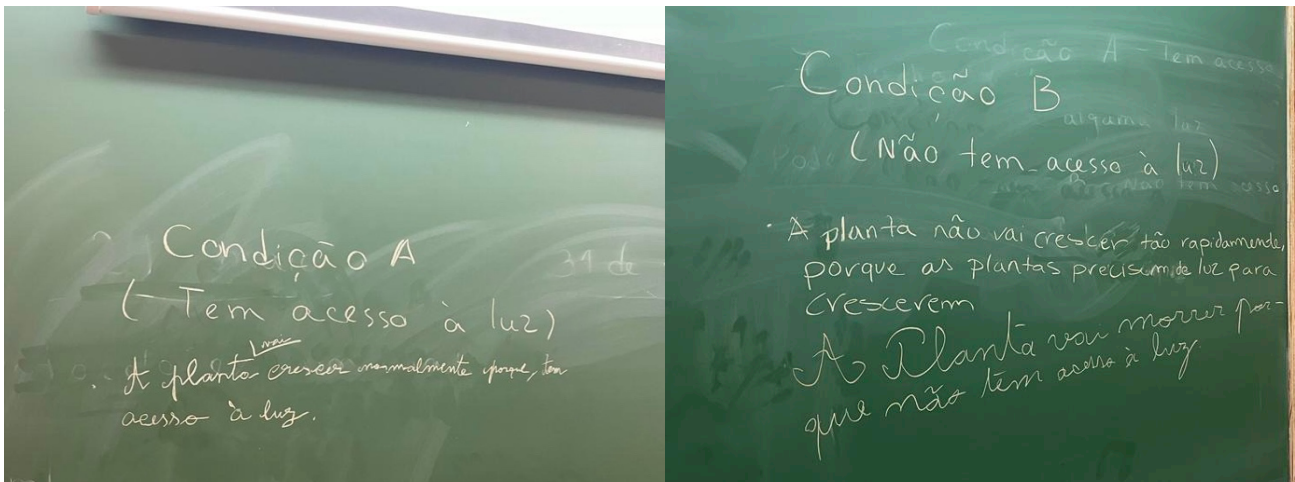 Condição A
(- Tem acesso à luz)
vai
. A planta crescer normalmente porque, tem
acesso à luz.
31 de
Condição A - tem acesso
Condição B
alguma luz
(Não tem acesso à luz)
Não tem acesso
· A planta não vai crescer tão rapidamende,
porque as plantas precisam de luz para
crescerem
A Planta vai morrer por-
que não têm acesso à luz.